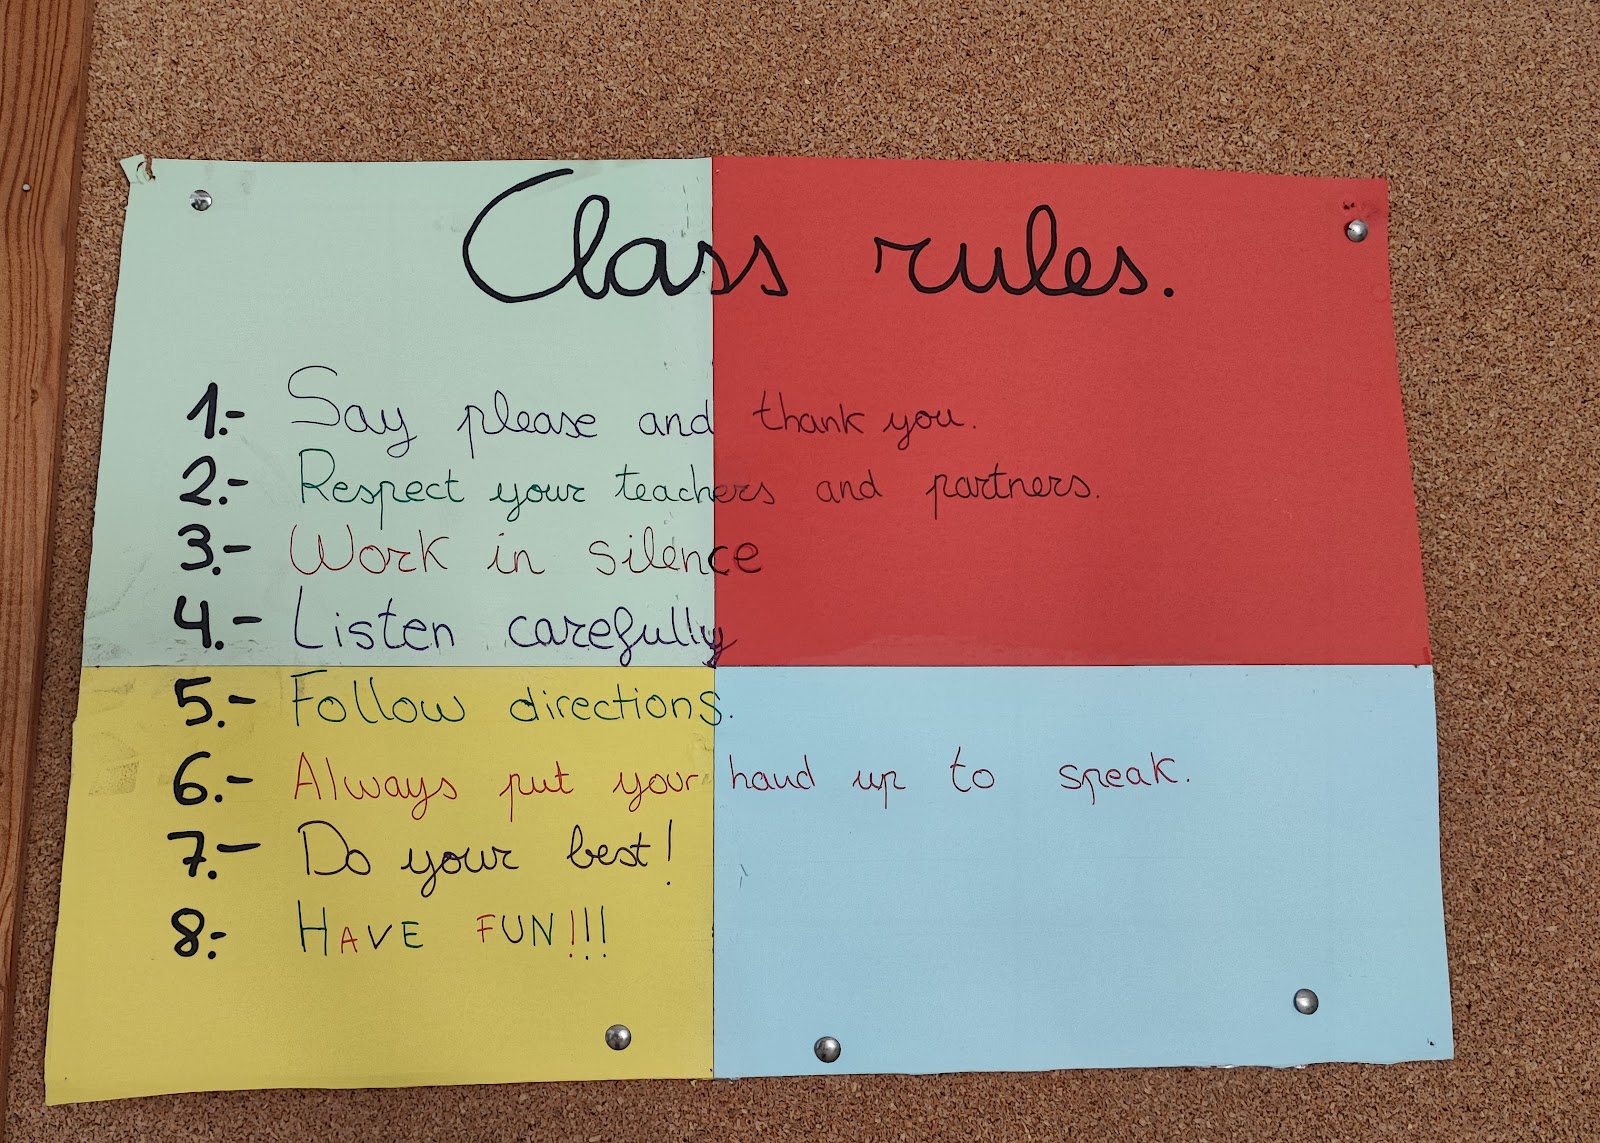 Class rules.
1.- Say please and thank you.
2.- Respect your teachers and partners.
3.- Work in silence
4.- Listen carefully
5.- Follow directions.
6.- Always put your hand up to speak.
7.- Do your best!
8.- HAVE FUN!!!